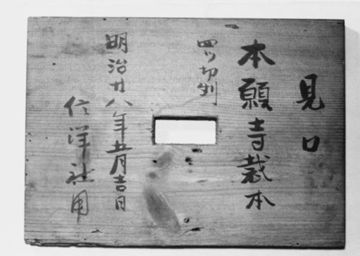 見口
本願寺裁本
四ツ切判
明治廿八年五月吉日
信洋社用